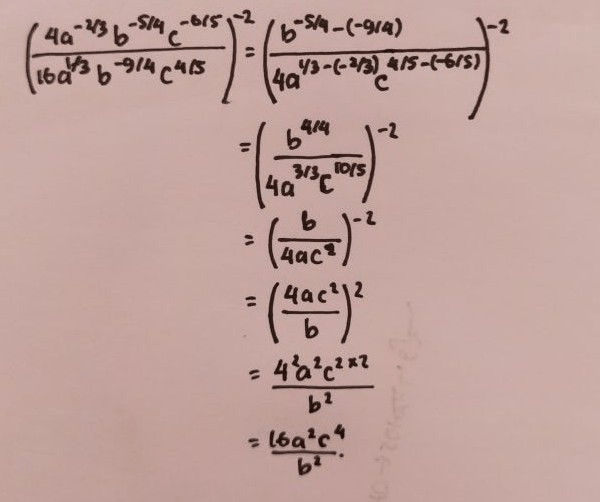 (4a^{-2/3} b^{-5/4} c^{-6/5} / 16a^{1/3} b^{-9/4} c^{4/5})^{-2} = (b^{-5/4-(-9/4)} / 4a^{1/3-(-2/3)} c^{4/5-(-6/5)})^{-2}
= (b^{4/4} / 4a^{3/3} c^{10/5})^{-2}
= (b / 4ac^2)^{-2}
= (4ac^2 / b)^2
= 4^2a^2c^{2×2} / b^2
= 16a^2c^4 / b^2.